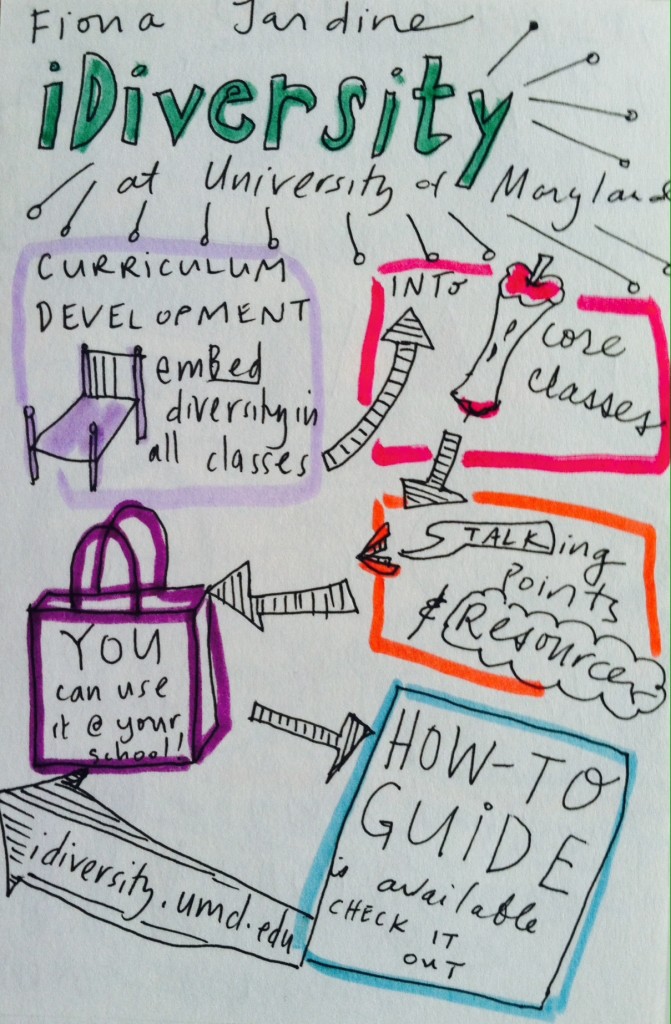 Fiona Jardine
iDiversity
at University of Maryland
CURRICULUM
DEVELOPMENT
emBed
diversity in
all classes
INTO
core
classes
TALKing
points
& Resources
YOU
can use
it @ your
school!
HOW-TO
GUiDE
is available
CHECK IT
OUT
idiversity.umd.edu